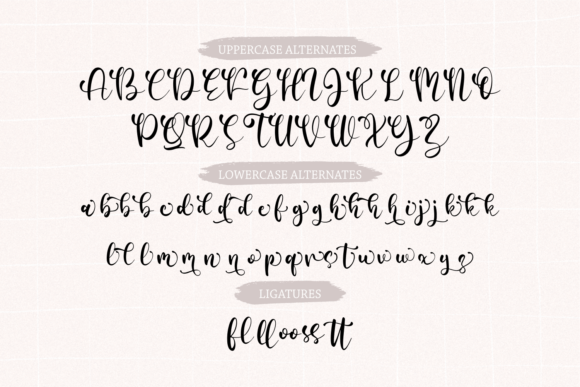 UPPERCASE ALTERNATES
ABCDEFGHIJKLMNO
PQRSTUVWXYZ
LOWERCASE ALTERNATES
abbbcdddefgghhhhijjkkk
lllmmnnnopqrstuvwwxyz
LIGATURES
fllloossstt